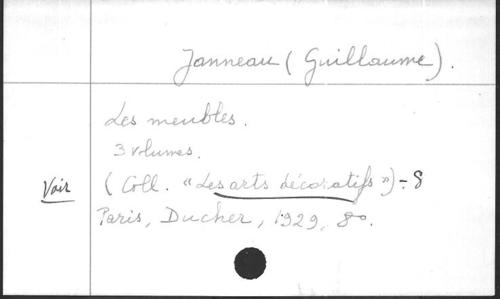 Janneau (Guillaume).
Les meubles.
3 volumes.
Voir
(Coll. "Les arts décoratifs") - 8
Paris, Ducher, 1929, 8º.